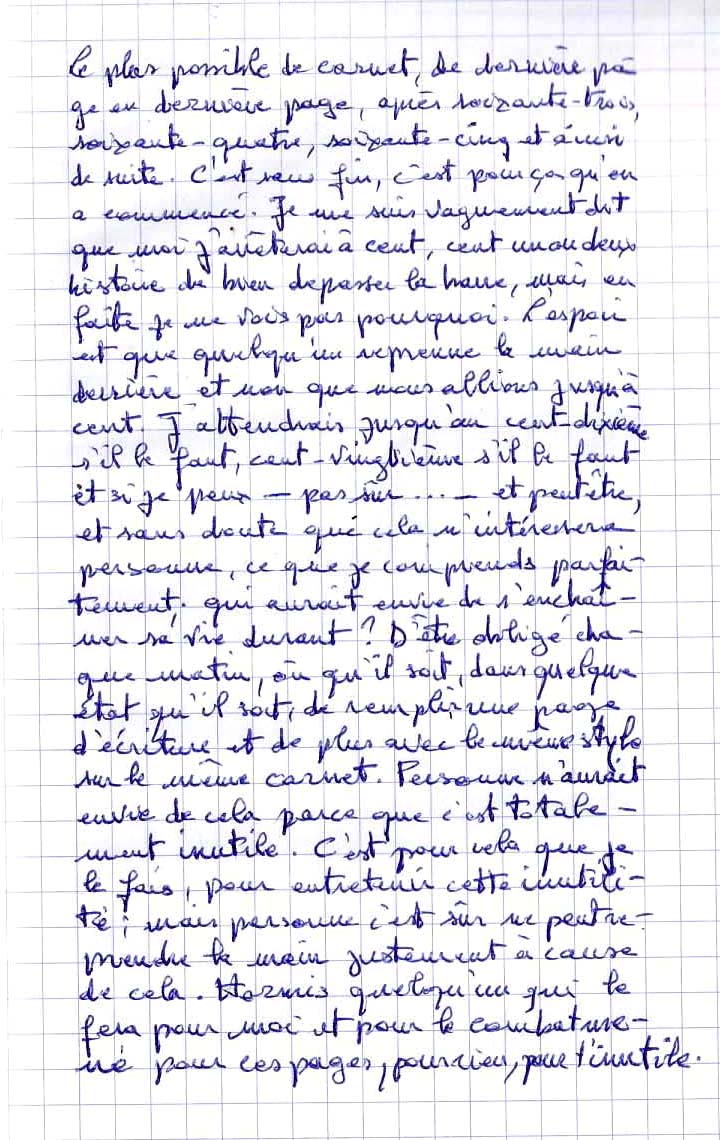 le plus possible de carnet, de dernière pa
ge en dernière page, après soixante-trois,
soixante-quatre, soixante-cinq et ainsi
de suite. C'est sans fin, c'est pour ça qu'on
a commencé. Je me suis vaguement dit
que moi j'arrêterai à cent, cent un ou deux
histoire de bien dépasser la barre, mais en
faite je ne vois pas pourquoi. L'espoir
est que quelqu'un reprenne la main
derrière et non que nous allions jusqu'à
cent. J'attendrais jusqu'au cent-dixième
s'il le faut, cent-vingtième s'il le faut
et si je peux — pas sûr ... — et peut être,
et sans doute que cela n'intéressera
personne, ce que je comprends parfai-
tement; qui aurait envie de s'enchaî-
ner sa vie durant ? D'être obligé cha-
que matin, où qu'il soit, dans quelque
état qu'il soit, de remplir une page
d'écriture et de plus avec le même stylo
sur le même carnet. Personne n'aurait
envie de cela parce que c'est totale-
ment inutile. C'est pour cela que je
le fais, pour entretenir cette inutili-
té; mais personne c'est sûr ne peut re-
prendre la main justement à cause
de cela. Hormis quelqu'un qui le
fera pour moi et pour le combat me-
né pour ces pages, pour rien, pour l'inutile.